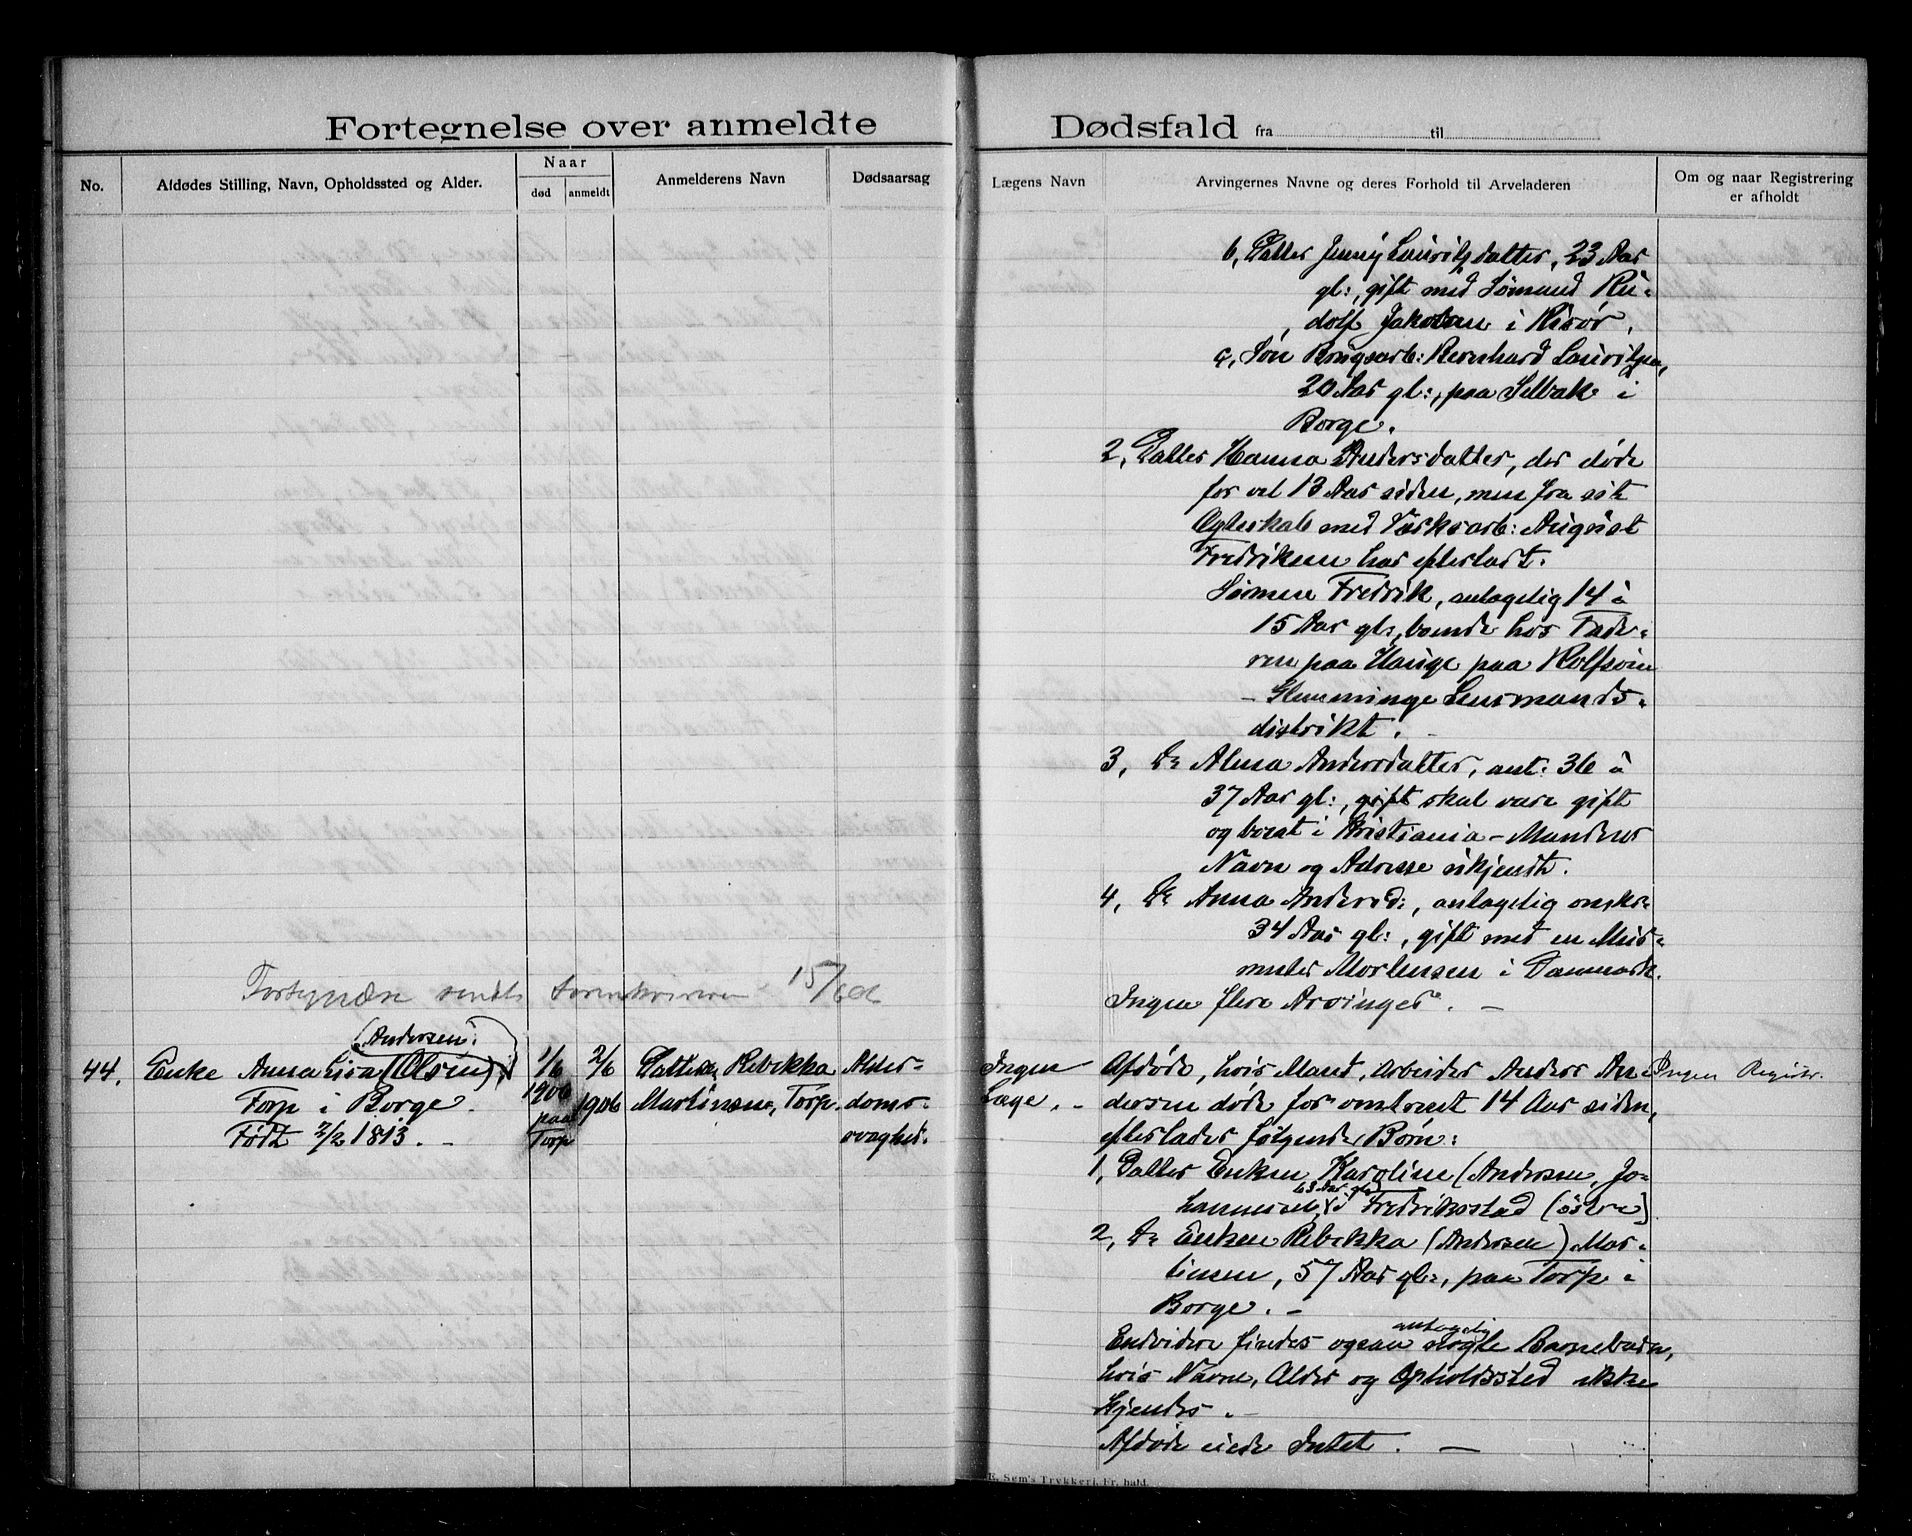 Fortegnelse over anmeldte
Dødsfald fra til
No.
Afdødes Stilling, Navn, Opholdssted og Alder.
Naar
død
anmeldt
Anmelderens Navn
Dødsaarsag
Lægens Navn
Arvingernes Navne og deres Forhold til Arveladeren
Om og naar Registrering
er afholdt
b, Datter Jenny Lauritzdatter, 23 Aar
gl:, gift med Sømand Ru-
dolf Jakobsen i Risør,
c, Søn Brugsarb: Bernhard Lauritzen,
20 Aar gl:, paa Selbak i
Borge.
2, Datter Hanna Andersdatter, der døde
for vel 13 Aar siden, men fra sit
Ægteskab med Værksarb: August
Fredriksen har efterladt:
Sønnen Fredrik, antagelig 14 à
15 Aar gl:, boende hos Fade-
ren paa Hauge paa Rolfsøen
- Glemminge Lensmands-
distrikt. -
3, Do Alma Andersdatter, ant: 36 à
37 Aar gl:, gift skal være gift
og bosat i Kristiania - Mandens
Navn og Adresse ukjendt.
4, Do Anna Andersd:, antagelig omkr:
34 Aar gl:, gift med en Mur-
mester Mortensen i Danmark.
Ingen flere Arvinger. -
sendt Sorenskriveren 15/6 06
(Andersen)
44. Enke Anna Lisa (Olsen),
Torp i Borge.
Født 2/2 1813. -
1/6
1906
paa
Torp
2/6
1906
Datteren Rebekka
Martinsen, Torp.
Alder-
doms-
svaghed.
Ingen
Læge. -
Afdøde, hvis Mand, Arbeider Anders An-
dersen døde for omtrent 14 Aar siden,
efterlader følgende Børn:
1, Datter Enken Karoline (Andersen) Jo-
63 Aar gl:
hannesen, i Fredriksstad (østre)
2, Do Enken Rebekka (Andersen) Mar-
tinsen, 57 Aar gl:, paa Torp i
Borge. -
antagelig
Endvidere findes ogsaa nogle Barnebørn,
hvis Navne, Alder og Opholdssted ikke
kjendes. -
Afdøde eiede Intet. -
Ingen Registr.
E. Sem's Trykkeri, Fr. hald.